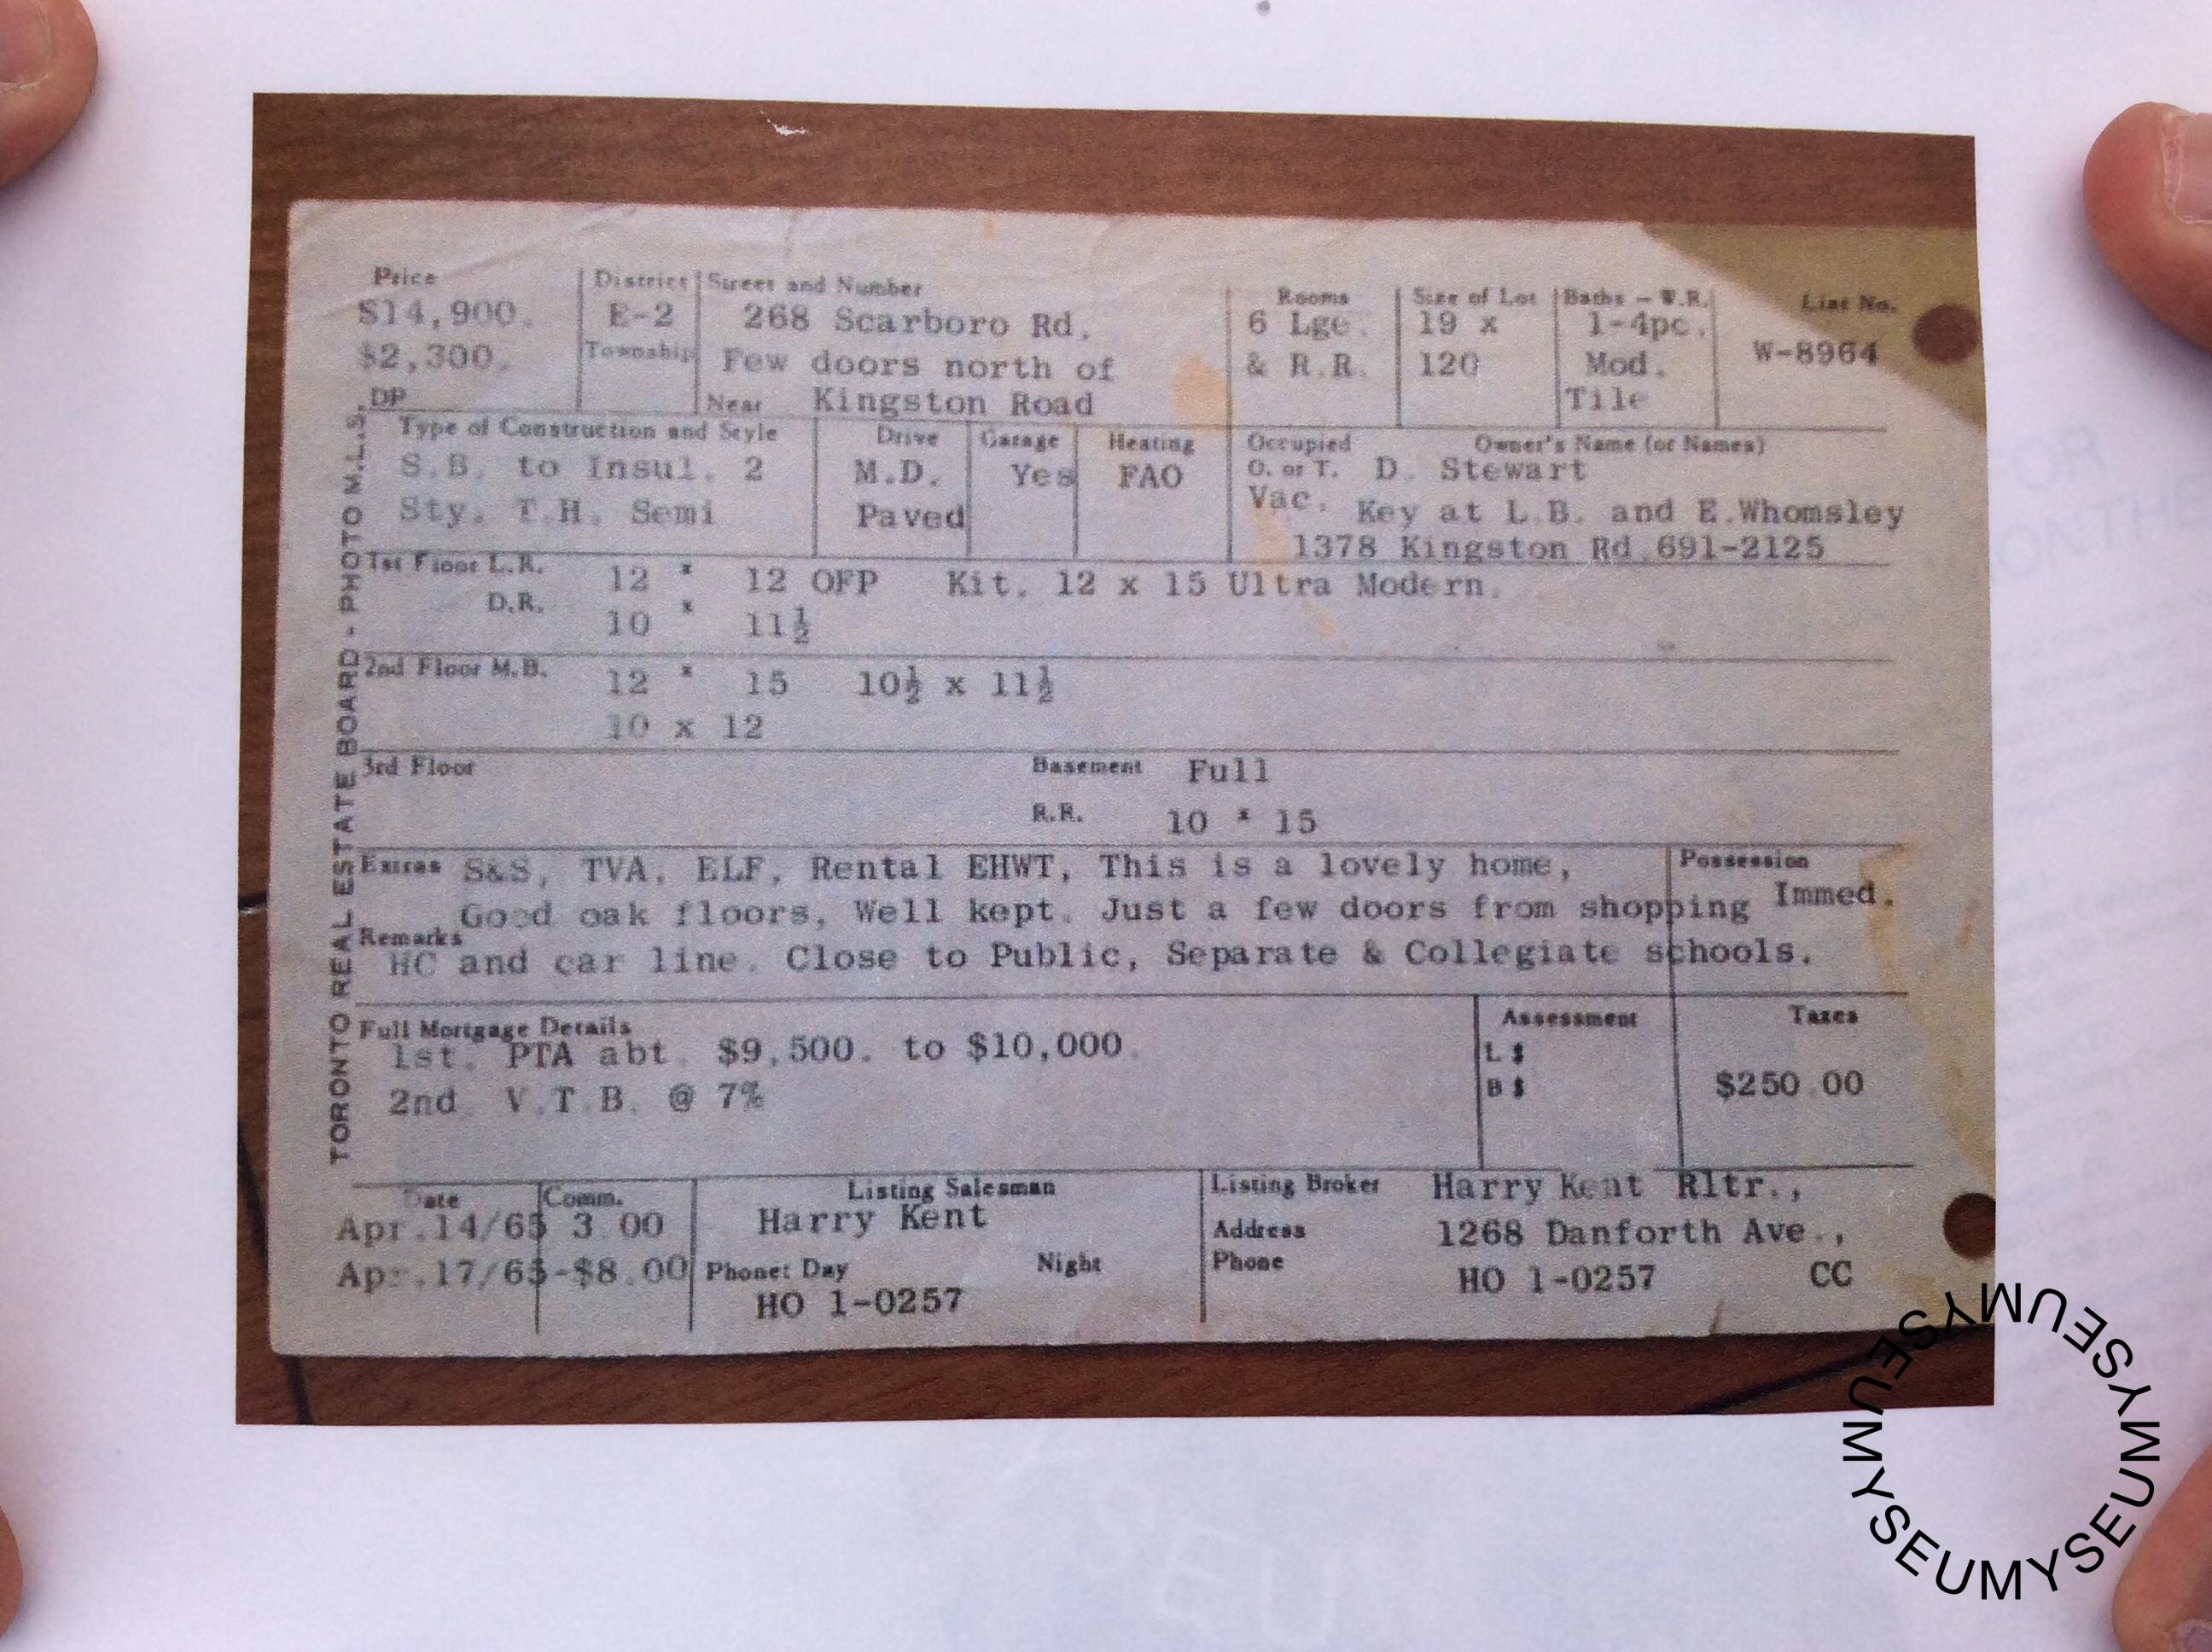 TORONTO REAL ESTATE BOARD - PHOTO M.L.S.
Price District Street and Number Rooms Size of Lot Baths - W.R. List No.
$14,900. E-2 268 Scarboro Rd. 6 Lge. 19 x 1-4pc. W-8964
$2,300. Township Few doors north of & R.R. 120 Mod.
DP Near Kingston Road Tile
Type of Construction and Style Drive Garage Heating Occupied Owner's Name (or Names)
S.B. to Insul. 2 M.D. Yes FAO O. or T. D. Stewart
Sty. T.H. Semi Paved Vac. Key at L.B. and E.Whomsley
1378 Kingston Rd.691-2125
1st Floor L.R. 12 x 12 OFP Kit. 12 x 15 Ultra Modern.
D.R. 10 x 11½
2nd Floor M.B. 12 x 15 10½ x 11½
10 x 12
3rd Floor Basement Full
R.R. 10 x 15
Extras S&S, TVA, ELF, Rental EHWT, This is a lovely home, Possession
Good oak floors, Well kept. Just a few doors from shopping Immed.
Remarks HC and car line. Close to Public, Separate & Collegiate schools.
Full Mortgage Details Assessment Taxes
1st. PTA abt. $9,500. to $10,000. L $
2nd V.T.B. @ 7% B $ $250.00
Date Comm. Listing Salesman Listing Broker Harry Kent Rltr.,
Apr.14/65 3.00 Harry Kent Address 1268 Danforth Ave.,
Apr.17/65-$8.00 Phone: Day Night Phone HO 1-0257 CC
HO 1-0257
MYSEUMYSEUMYSEUMYSEU